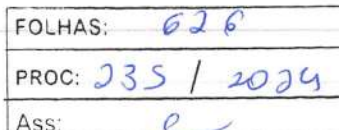 FOLHAS: 626
PROC: 235 / 2024
Ass: